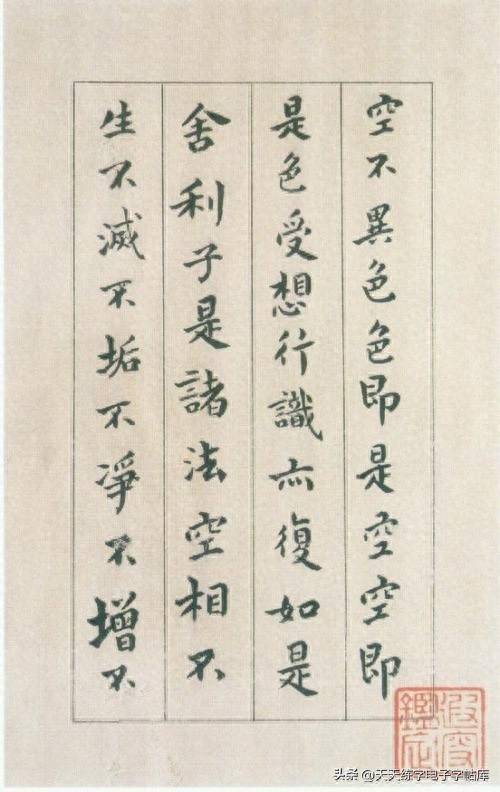 空不異色色即是空空即
是色受想行識亦復如是
舍利子是諸法空相不
生不滅不垢不凈不增不
头条@天天练字电子字帖库